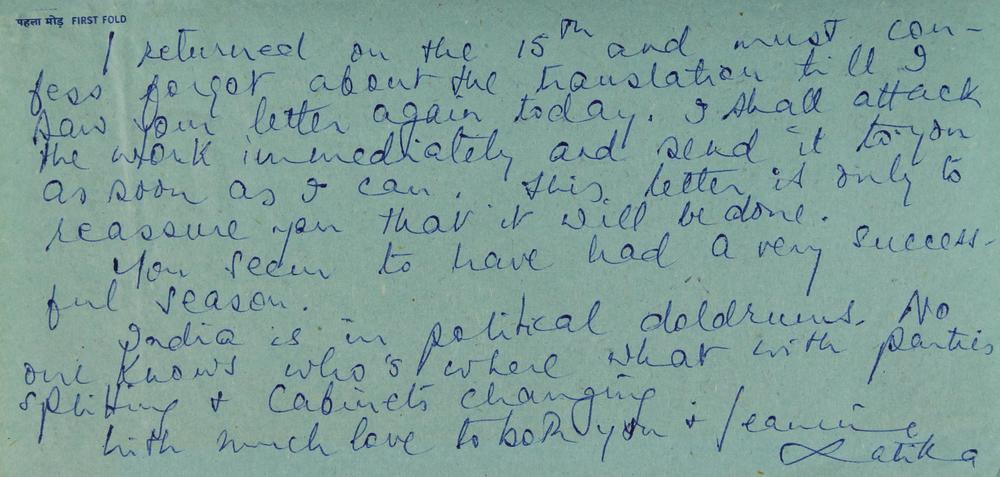 पहला मोड़ FIRST FOLD
I returned on the 15th and must con-
fess forgot about the translation till I
saw your letter again today. I shall attack
the work immediately and send it to you
as soon as I can. This letter is only to
reassure you that it will be done.
You seem to have had a very success-
ful season.
India is in political doldrums. No
one knows who's where what with parties
splitting & Cabinets changing
With much love to both you & Jeannine
Latika